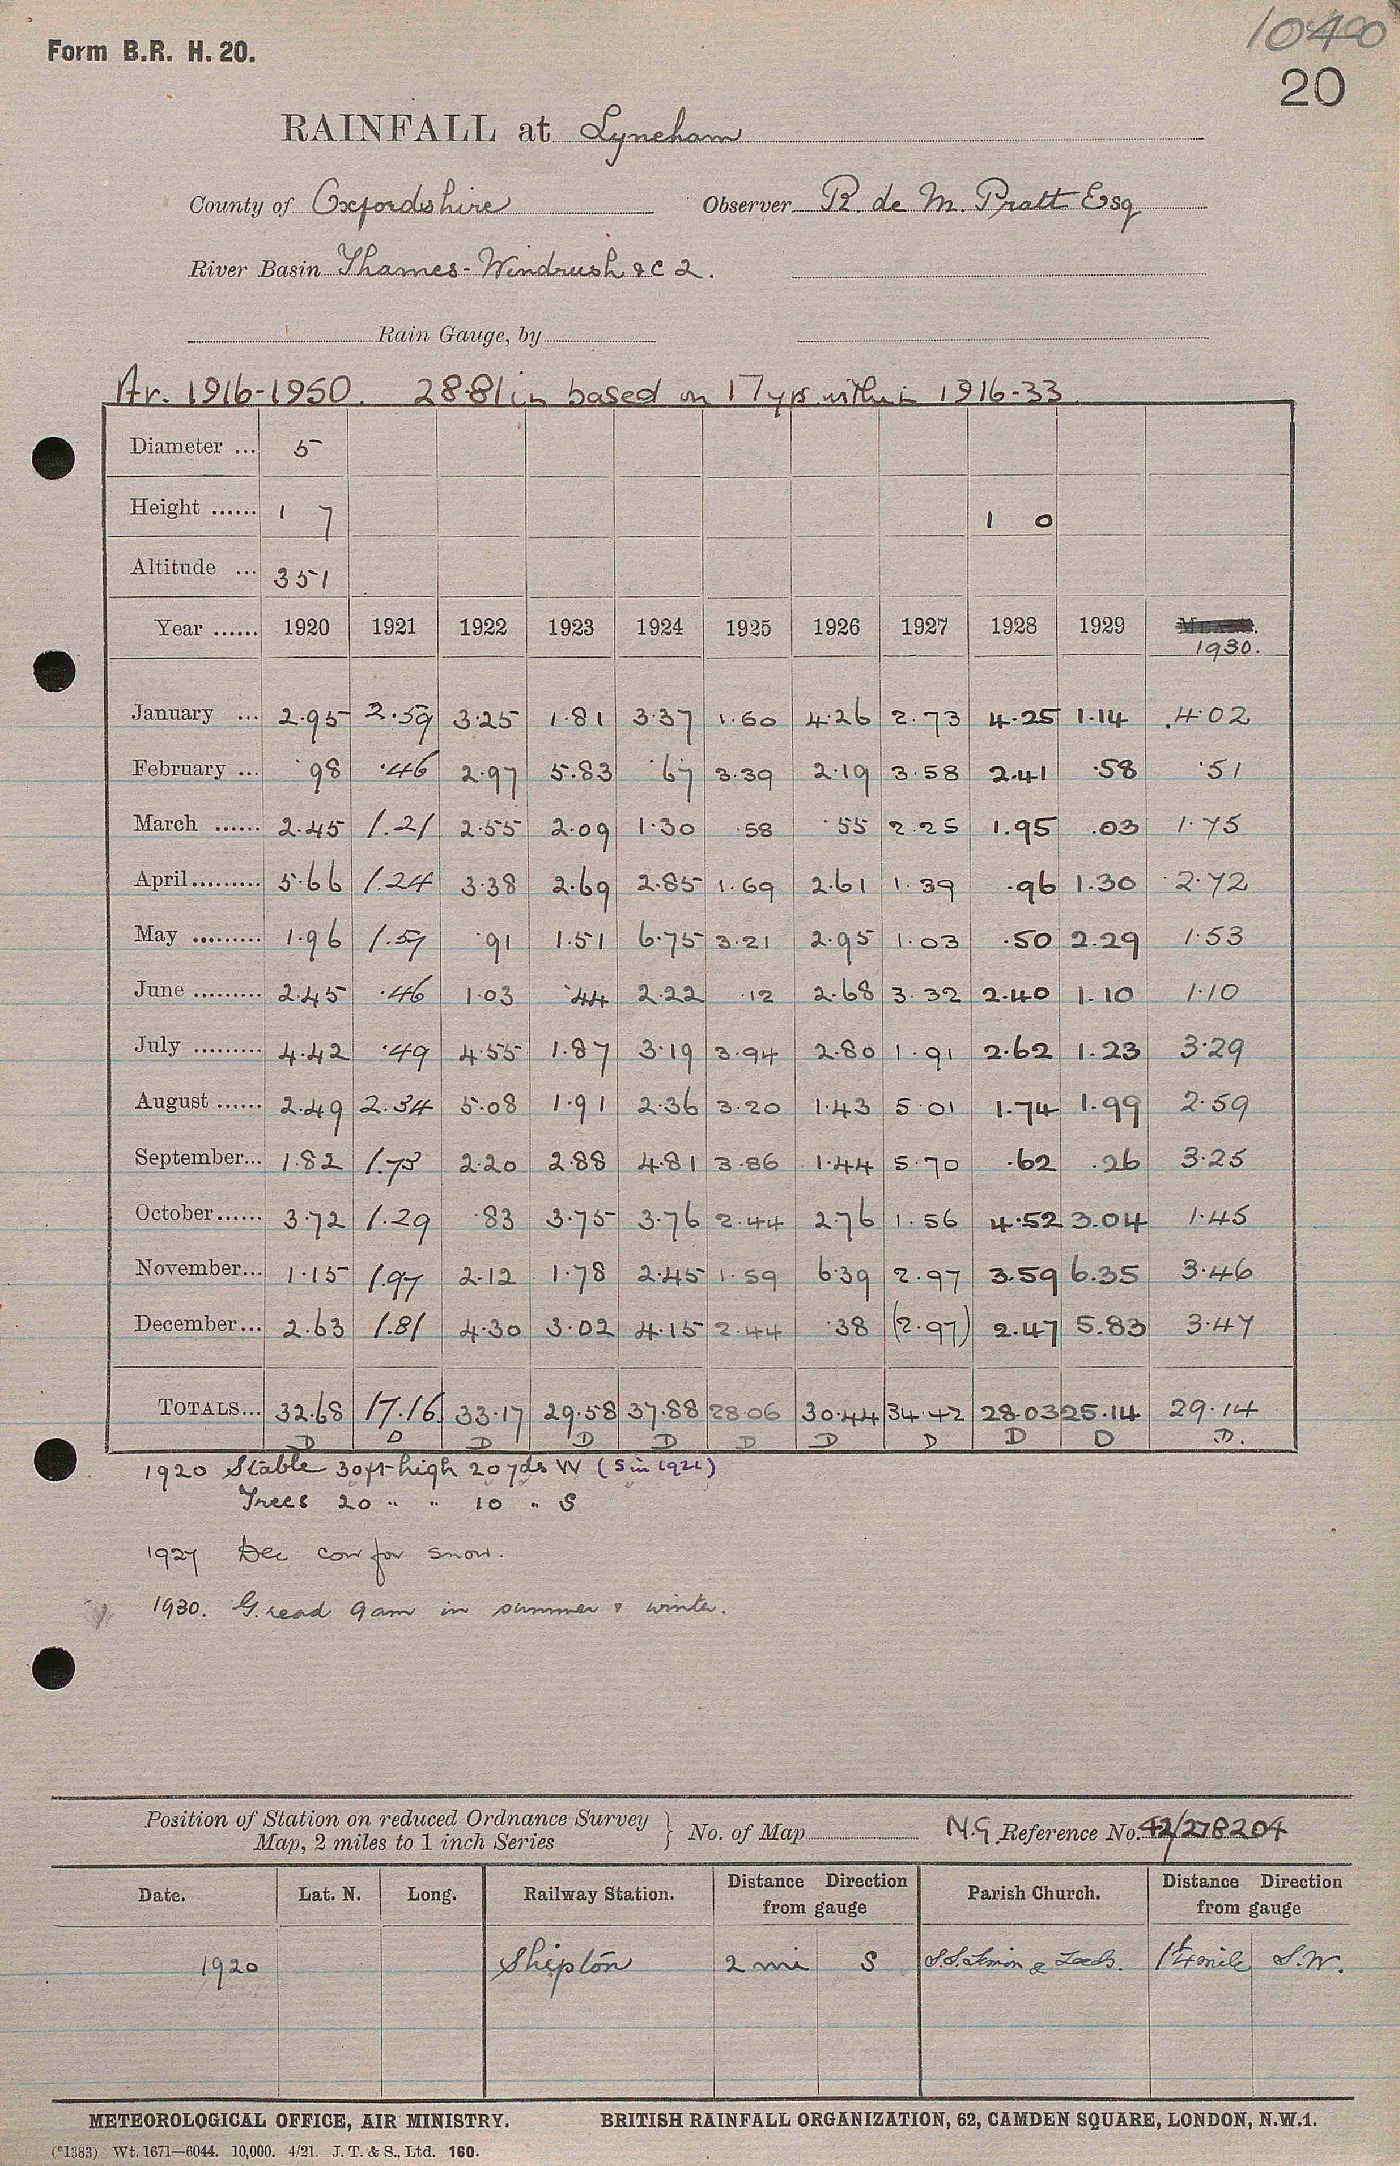 10400
Form B.R. H. 20.
20
RAINFALL at Lyneham
County of Oxfordshire Observer R de M. Pratt Esq
River Basin Thames-Windrush &c 2.
Rain Gauge, by
Av. 1916-1950. 28.81 in based on 17 yrs within 1916-33
Diameter ... 5
Height ...... 1 7 1 0
Altitude ... 351
Year ...... 1920 1921 1922 1923 1924 1925 1926 1927 1928 1929 1930.
January ... 2.95 2.59 3.25 1.81 3.37 1.60 4.26 2.73 4.25 1.14 4.02
February ... .98 .46 2.97 5.83 .67 3.39 2.19 3.58 2.41 .58 .51
March ...... 2.45 1.21 2.55 2.09 1.30 .58 .55 2.25 1.95 .03 1.75
April ......... 5.66 1.24 3.38 2.69 2.85 1.69 2.61 1.39 .96 1.30 2.72
May ......... 1.96 1.59 .91 1.51 6.75 3.21 2.95 1.03 .50 2.29 1.53
June ......... 2.45 .46 1.03 .44 2.22 .12 2.68 3.32 2.40 1.10 1.10
July ......... 4.42 .49 4.55 1.87 3.19 3.94 2.80 1.91 2.62 1.23 3.29
August ...... 2.49 2.34 5.08 1.91 2.36 3.20 1.43 5.01 1.74 1.99 2.59
September... 1.82 1.73 2.20 2.88 4.81 3.86 1.44 5.70 .62 .26 3.25
October ...... 3.72 1.29 .83 3.75 3.76 2.44 2.76 1.56 4.52 3.04 1.45
November... 1.15 1.97 2.12 1.78 2.45 1.59 6.39 2.97 3.59 6.35 3.46
December... 2.63 1.81 4.30 3.02 4.15 2.44 .38 (2.97) 2.47 5.83 3.47
TOTALS... 32.68 17.16 33.17 29.58 37.88 28.06 30.44 34.42 28.03 25.14 29.14
D D D D D D D D D D D.
1920 Stable 30ft high 20 yds W (S in 1921)
Trees 20 " " 10 " S
1927 Dec corr for snow.
1930. G. read 9am in summer & winter.
Position of Station on reduced Ordnance Survey
Map, 2 miles to 1 inch Series } No. of Map N.G Reference No. 42/278204
Date. Lat. N. Long. Railway Station. Distance Direction from gauge Parish Church. Distance Direction from gauge
1920 Shipton 2 mi S S.S. Simon & 1¼ mile S.W.
METEOROLOGICAL OFFICE, AIR MINISTRY. BRITISH RAINFALL ORGANIZATION, 62, CAMDEN SQUARE, LONDON, N.W.1.
(*1383) Wt. 1671—6044. 10,000. 4/21. J. T. & S., Ltd. 160.